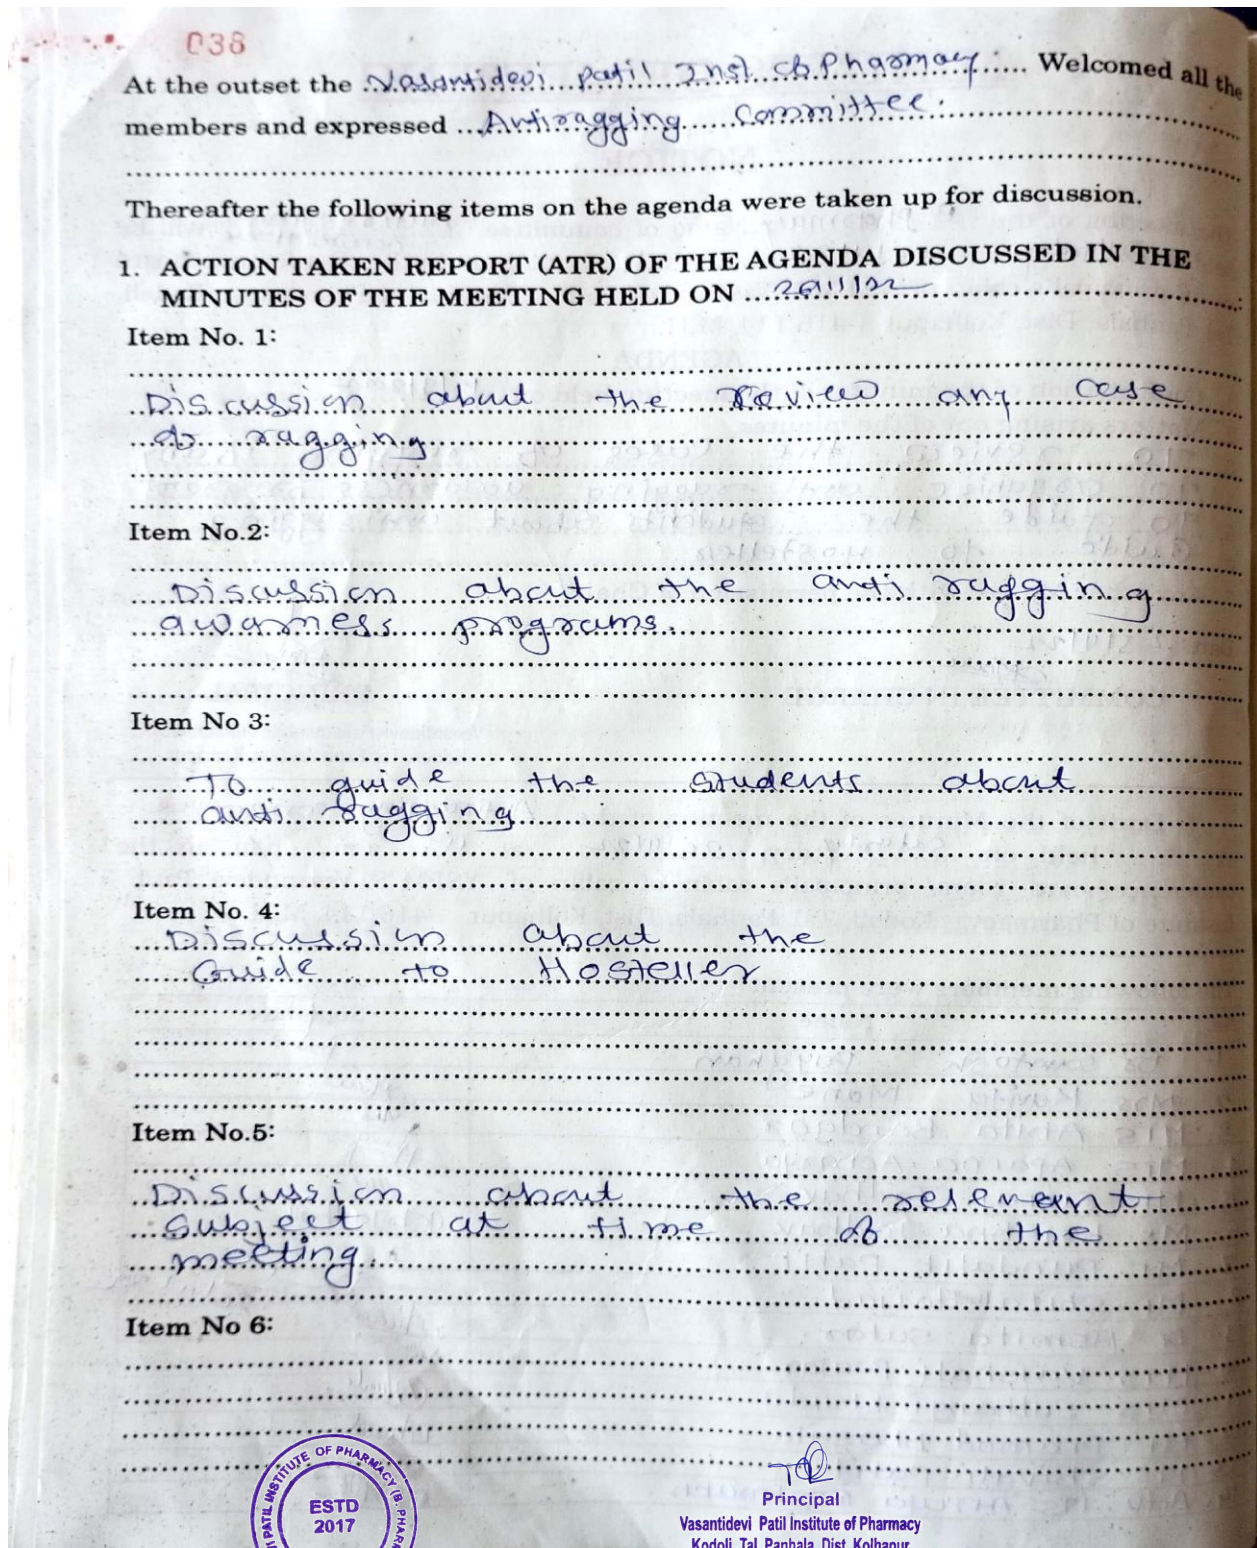 036
At the outset the Vasantidevi patil Inst. of Pharmacy Welcomed all the
members and expressed Antiragging Committee.
Thereafter the following items on the agenda were taken up for discussion.
1. ACTION TAKEN REPORT (ATR) OF THE AGENDA DISCUSSED IN THE
MINUTES OF THE MEETING HELD ON
Item No. 1:
Discussion about the Review any case
of ragging
Item No.2:
Discussion about the anti ragging
awarness programs.
Item No 3:
To guide the students about
anti ragging
Item No. 4:
Discussion about the
Guide to Hosteller
Item No.5:
Discussion about the relevant
subject at time of the
meeting.
Item No 6:
PATIL INSTITUTE OF PHARMACY (B. PHARM
ESTD
2017
Principal
Vasantidevi Patil Institute of Pharmacy
Kodoli, Tal. Panhala, Dist. Kolhapur